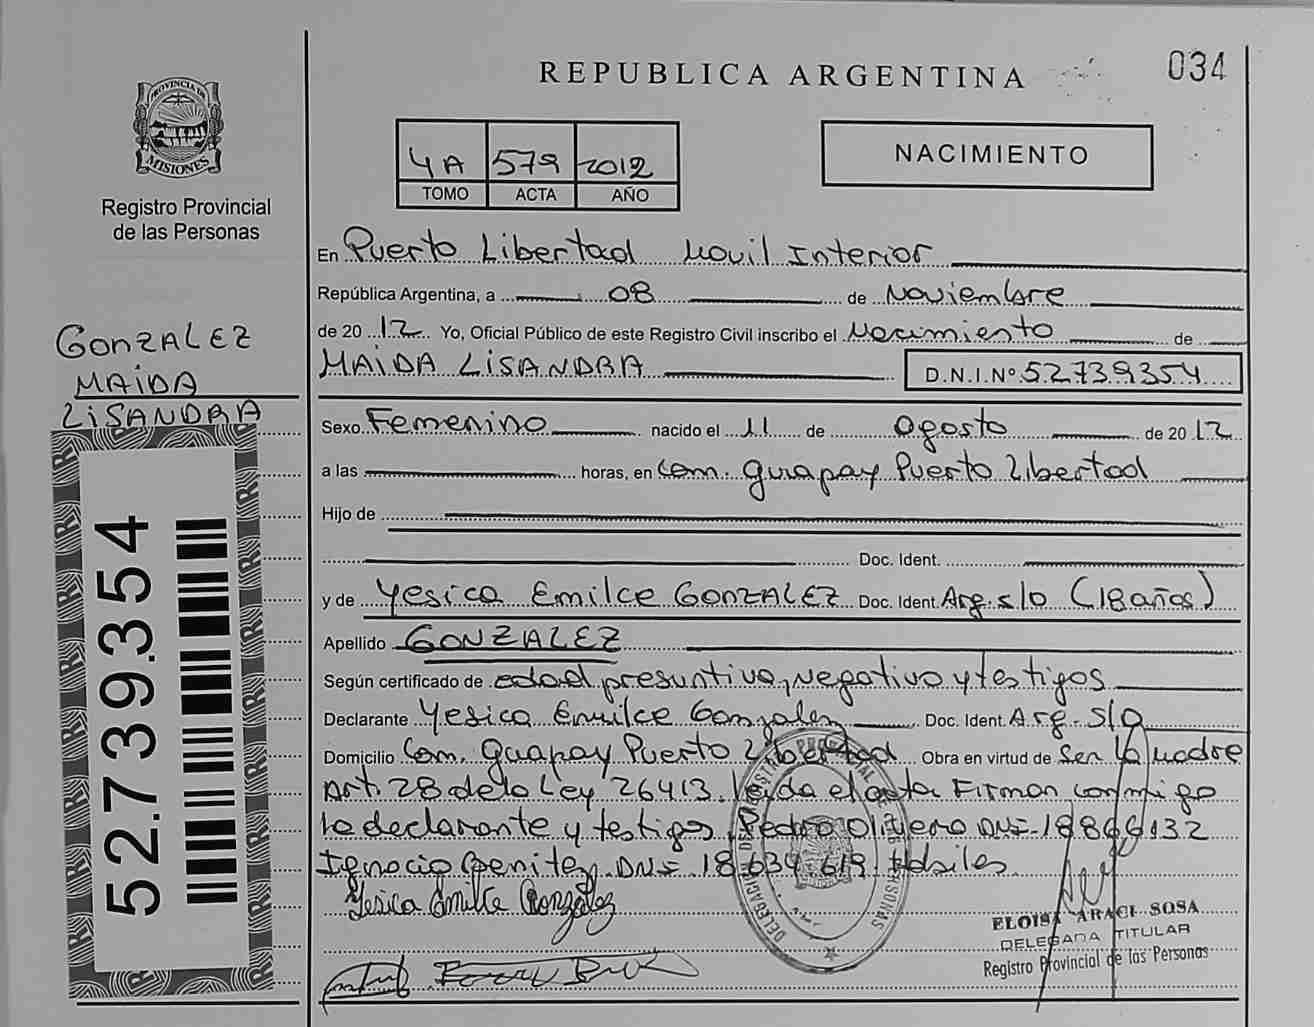 REPUBLICA ARGENTINA
034
PROVINCIA DE
MISIONES
Registro Provincial
de las Personas
4A 579 2012
TOMO ACTA AÑO
NACIMIENTO
En Puerto Libertad Movil Interior
República Argentina, a 08 de Noviembre
de 2012 Yo, Oficial Público de este Registro Civil inscribo el Nacimiento de
MAIDA LISANDRA D.N.I.Nº 52739354
GONZALEZ
MAIDA
LISANDRA
52.739.354
Sexo Femenino nacido el 11 de Agosto de 2012
a las horas, en Com. Guapay Puerto Libertad
Hijo de
Doc. Ident.
y de Yesica Emilce GONZALEZ Doc. Ident. Arg. s/d (18 años)
Apellido GONZALEZ
Según certificado de edad presuntiva, negativo y testigos
Declarante Yesica Emilce Gonzalez Doc. Ident. Arg. s/d
Domicilio Com. Guapay Puerto Libertad Obra en virtud de Ser la madre
Art. 28 de la Ley 26413. Leida el acta Firman conmigo
la declarante y testigos Pedro DNI-18866132
Ignacio Benitez DNI 18.634.619 Habiles
Yesica Emilce Gonzalez
ELOISA ARACI SOSA
DELEGADA TITULAR
Registro Provincial de las Personas